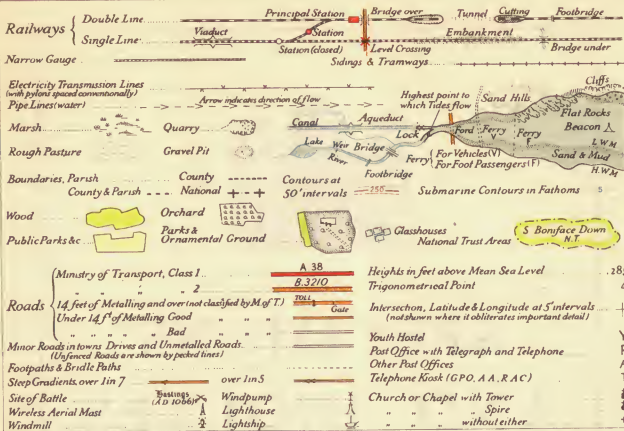 Railways
Double Line
Principal Station
Bridge over
Tunnel
Cutting
Footbridge
Single Line
Viaduct
Station
Station (closed)
Level Crossing
Embankment
Bridge under
Narrow Gauge
Sidings & Tramways
Electricity Transmission Lines
(with pylons spaced conventionally)
Pipe Lines (water)
Arrow indicates direction of flow
Highest point to
which Tides flow
Sand Hills
Cliffs
Flat Rocks
Beacon
L.W.M
Sand & Mud
H.W.M
Marsh
Quarry
Canal
Aqueduct
Lock
Ford
Ferry
V
Ferry
Rough Pasture
Gravel Pit
Lake
Weir
Bridge
River
Footbridge
Ferry
For Vehicles (V)
For Foot Passengers (F)
Boundaries, Parish
County
County & Parish
National
Contours at
50' intervals
250
Submarine Contours in Fathoms
5
Wood
Orchard
Public Parks &c
Parks &
Ornamental Ground
Glasshouses
National Trust Areas
S Boniface Down
N.T.
Roads
Ministry of Transport, Class 1
A 38
" " " 2
B.3210
14 feet of Metalling and over (not classified by M. of T.)
TOLL
Gate
Under 14 ft of Metalling Good " "
" " " " Bad " "
Minor Roads in towns Drives and Unmetalled Roads
(Unfenced Roads are shown by pecked lines)
Footpaths & Bridle Paths
Steep Gradients, over 1 in 7
over 1 in 5
Site of Battle
Hastings
(A D 1066)
Windpump
Wireless Aerial Mast
Lighthouse
Windmill
Lightship
Heights in feet above Mean Sea Level
.285
Trigonometrical Point
Intersection, Latitude & Longitude at 5' intervals
(not shown where it obliterates important detail)
Youth Hostel
Y
Post Office with Telegraph and Telephone
Other Post Offices
Telephone Kiosk (G P O, A A, R A C)
Church or Chapel with Tower
" " " Spire
" " without either